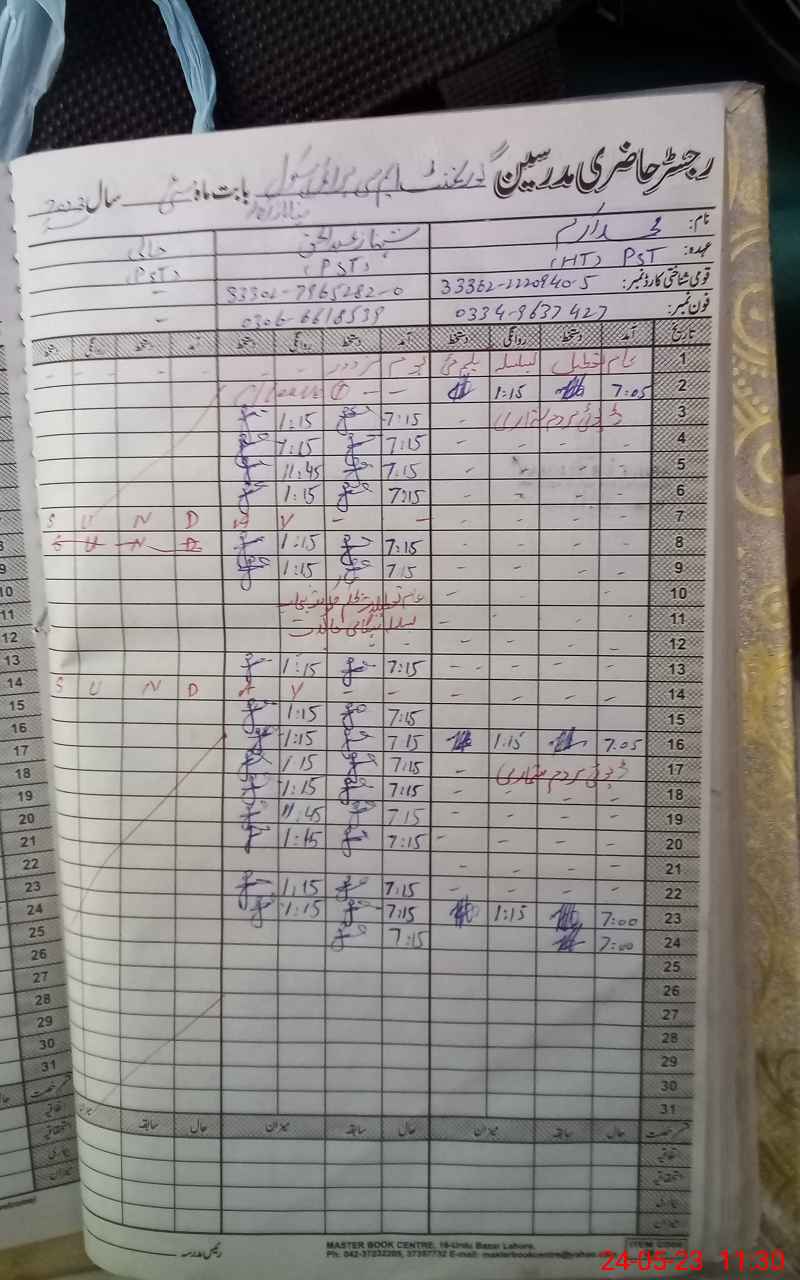 رجسٹر حاضری مدرسین گورنمنٹ ایم سی پرائمری سکول بابت ماہ مئی سال 2023
نام: محمد اکرم شہباز عبدالحق خالی
عہدہ: PST (HT) (PST) (PST)
قومی شناختی کارڈ نمبر: 33302-7965282-0 -
فون نمبر: 0334-9637427 0306-6618539 -
تاریخ آمد دستخط روانگی دستخط آمد دستخط روانگی دستخط دستخط روانگی دستخط
1 عام تعطیل بسلسلہ یکم مئی یوم مزدور
2 7:05 1:15 - -
3 ڈیوٹی مردم شماری - 7:15 1:15
4 - - - - 7:15 7:15
5 - - - 7:15 11:45
6 - - - - 7:15 1:15
7 - - - - - - Y A D N U S
8 - - - - 7:15 1:15 D N U S
9 - - - - 7:15 1:15
10 - - - - عام تعطیل
11 - - - - بسلسلہ ہنگامی حالات
12 - - - - - -
13 - - - - 7:15 1:15
14 - - - - - - Y A D N U S
15 7:15 1:15
16 7:05 1:15 7:15 1:15
17 ڈیوٹی مردم شماری - 7:15 1:15
18 - - - - 7:15 1:15
19 - - - - 7:15 11:45
20 - - - - 7:15 1:45
21 - - - -
22 - - - - 7:15 1:15
23 7:00 1:15 7:15 1:15
24 7:00 7:15
25
26
27
28
29
30
31
قسم رخصت حال سابقہ میزان حال سابقہ میزان حال سابقہ میزان
اتفاقیہ
استحقاقیہ
بیماری
میزان
رئیس مدرسہ
MASTER BOOK CENTRE, 16-Urdu Bazar Lahore.
Ph: 042-37232205, 37357732 E-mail: masterbookcentre@yahoo.com
ITEM CODE
8
9
10
11
12
13
14
15
16
17
18
19
20
21
22
23
24
25
26
27
28
29
30
31
24-05-23 11:30